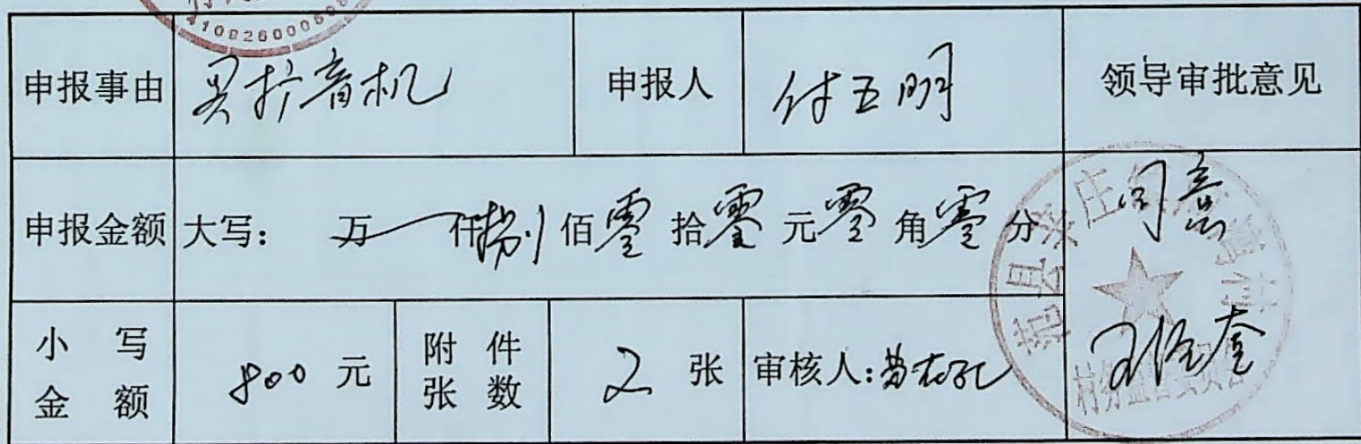 4109260006
申报事由 买扩音机 申报人 付五明 领导审批意见
申报金额 大写： 万 仟捌佰零拾零元零角零分 同意
小写金额 800 元 附件张数 2 张 审核人：
范县 庄 村
村务监督委员会